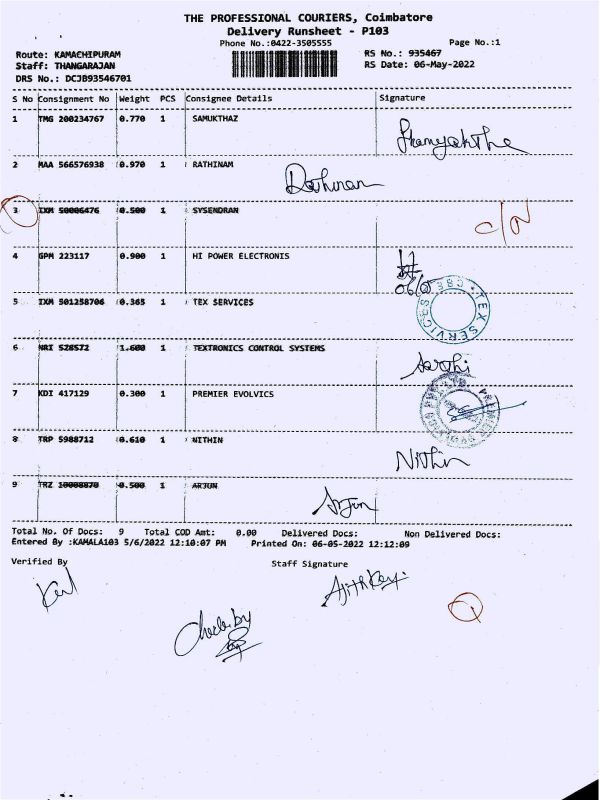 THE PROFESSIONAL COURIERS, Coimbatore
Delivery Runsheet - P103
Phone No.:0422-3505555 Page No.:1
Route: KAMACHIPURAM RS No.: 935467
Staff: THANGARAJAN RS Date: 06-May-2022
DRS No.: DCJB93546701
S No Consignment No Weight PCS Consignee Details Signature
1 TMG 200234767 0.770 1 SAMUKTHAZ
2 MAA 566576938 0.970 1 RATHINAM
3 IXM 50006476 0.500 1 SYSENDRAN
4 GPM 223117 0.900 1 HI POWER ELECTRONIS
06/0
5 IXM 501258706 0.365 1 TEX SERVICES
TEX SERVICES CBE
6 NRI 528572 1.600 1 TEXTRONICS CONTROL SYSTEMS
7 KDI 417129 0.300 1 PREMIER EVOLVICS
8 TRP 5988712 0.610 1 NITHIN
Nithin
9 TRZ 10008870 0.500 1 ARJUN
Arjun
Total No. Of Docs: 9 Total COD Amt: 0.00 Delivered Docs: Non Delivered Docs:
Entered By :KAMALA103 5/6/2022 12:10:07 PM Printed On: 06-05-2022 12:12:09
Verified By Staff Signature